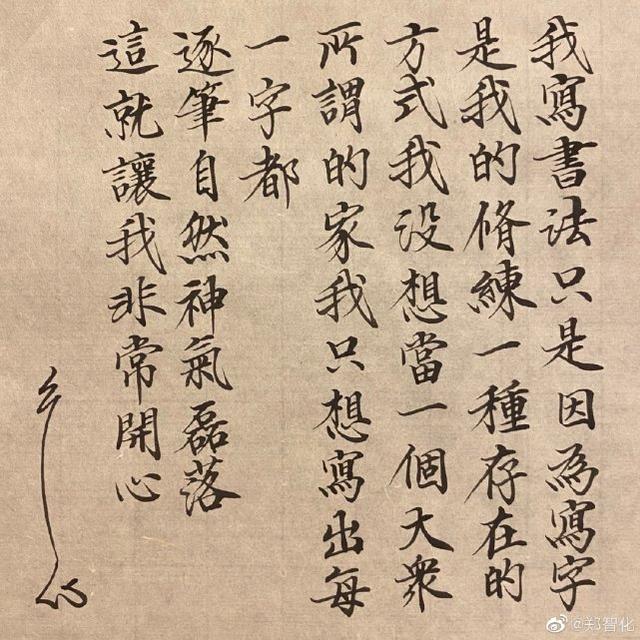 我寫書法只是因為寫字
是我的脩練一種存在的
方式我没想當一個大衆
所謂的家我只想寫出每
一字都
逐筆自然神氣磊落
這就讓我非常開心
@郑智化